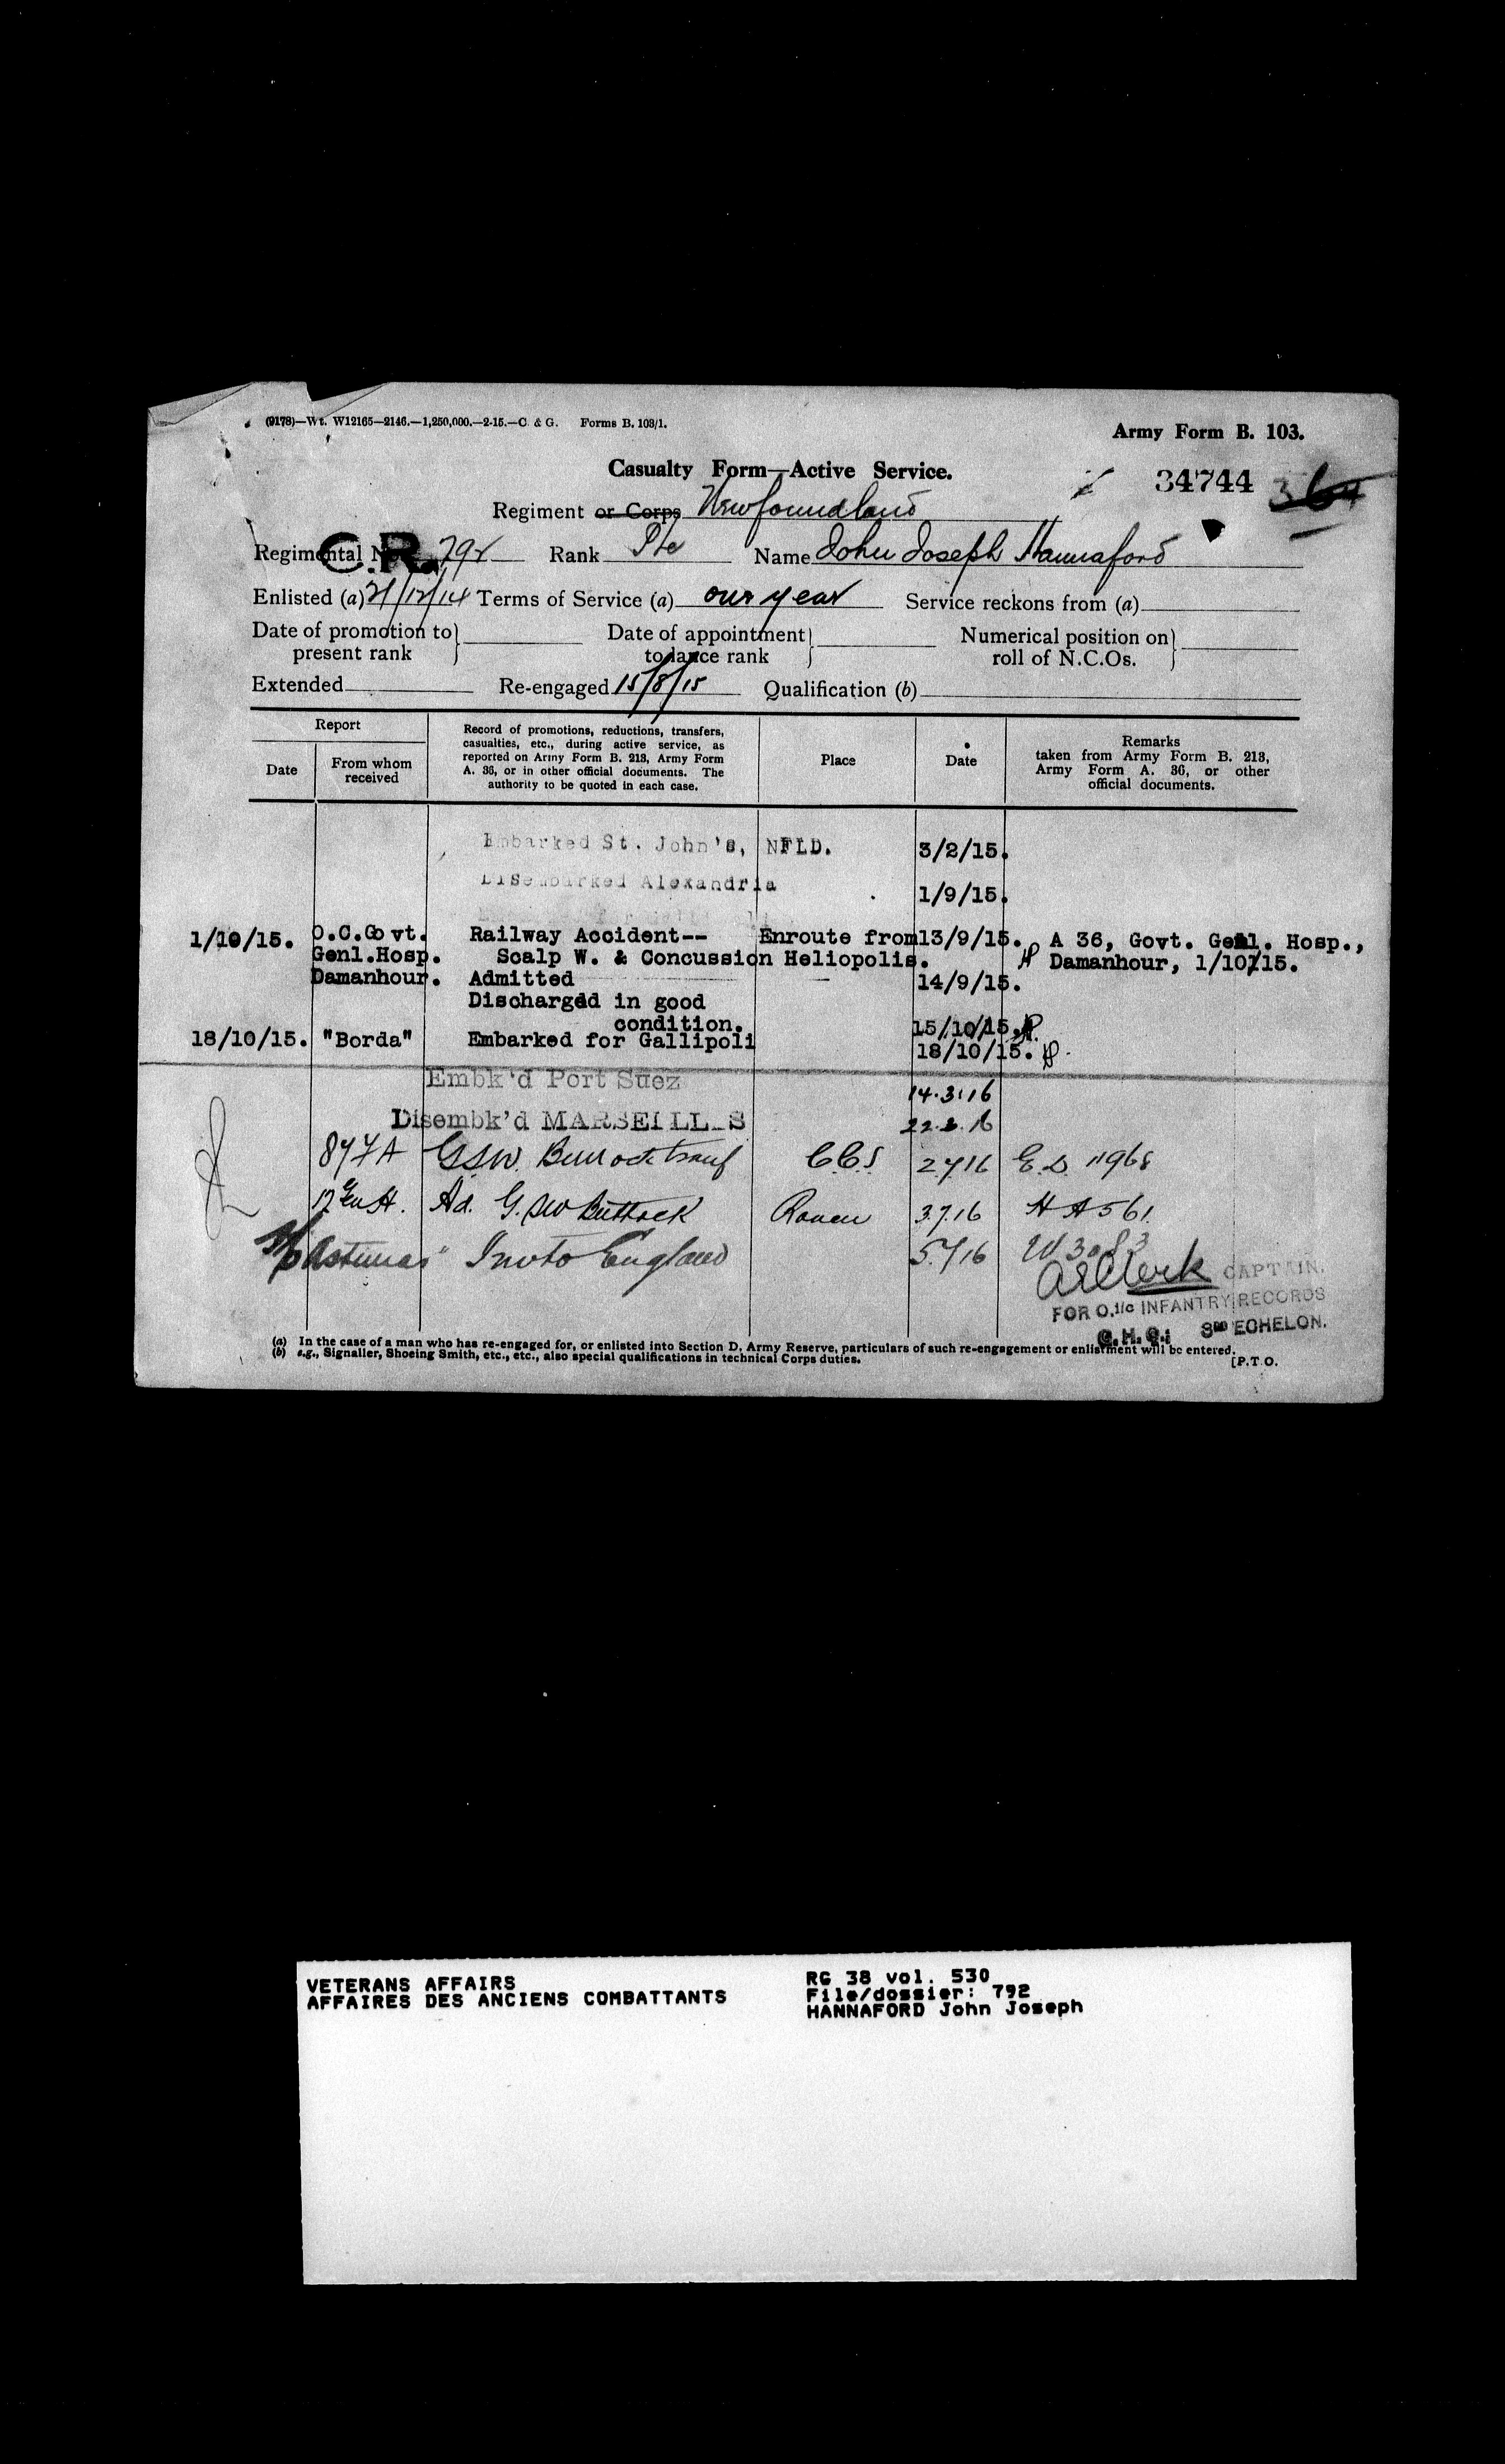 (9178)—Wt. W12165—2146.—1,250,000.—2-15.—C. & G. Forms B. 103/1.
Army Form B. 103.
Casualty Form—Active Service.
34744
Regiment or Corps Newfoundland
C.R.
Regimental No. 792 Rank Pte Name John Joseph Hannaford
Enlisted (a) 21/12/14 Terms of Service (a) one year Service reckons from (a)
Date of promotion to present rank } Date of appointment to lance rank } Numerical position on roll of N.C.Os. }
Extended Re-engaged 15/8/15 Qualification (b)
Report
Date
From whom received
Record of promotions, reductions, transfers, casualties, etc., during active service, as reported on Army Form B. 213, Army Form A. 36, or in other official documents. The authority to be quoted in each case.
Place
Date
Remarks taken from Army Form B. 213, Army Form A. 36, or other official documents.
Embarked St. John's, NFLD. 3/2/15.
Disembarked Alexandria 1/9/15.
1/10/15. O.C.Govt. Railway Accident-- Enroute from 13/9/15. A 36, Govt. Genl. Hosp.,
Genl.Hosp. Scalp W. & Concussion Heliopolis. Damanhour, 1/10/15.
Damanhour. Admitted 14/9/15.
Discharged in good
condition. 15/10/15.
18/10/15. "Borda" Embarked for Gallipoli 18/10/15.
Embk'd Port Suez 14.3.16
Disembk'd MARSEILL_S 22.3.16
G.S.W. Buttock transf C.C.S 2.7.16 E.D. 11968
12 Gen H. Ad. G.S.W Buttock Rouen 3.7.16 H A 561
H/S Asturias" Inv to England 5.7.16 W 3083
AEClerk CAPTAIN.
FOR O.i/c INFANTRY RECORDS
G.H.Q.: 3RD ECHELON.
(a) In the case of a man who has re-engaged for, or enlisted into Section D, Army Reserve, particulars of such re-engagement or enlistment will be entered.
(b) e.g., Signaller, Shoeing Smith, etc., etc., also special qualifications in technical Corps duties.
[P.T.O.
VETERANS AFFAIRS
AFFAIRES DES ANCIENS COMBATTANTS
RG 38 vol. 530
File/dossier: 792
HANNAFORD John Joseph